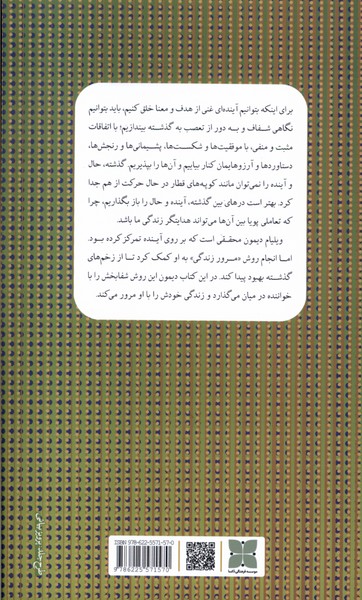 برای اینکه بتوانیم آینده‌ای غنی از هدف و معنا خلق کنیم، باید بتوانیم
نگاهی شفاف و به دور از تعصب به گذشته بیندازیم؛ با اتفاقات
مثبت و منفی، با موفقیت‌ها و شکست‌ها، پشیمانی‌ها و رنجش‌ها،
دستاوردها و آرزوهایمان کنار بیاییم و آن‌ها را بپذیریم. گذشته، حال
و آینده را نمی‌توان مانند کوپه‌های قطار در حال حرکت از هم جدا
کرد. بهتر است درهای بین گذشته، آینده و حال را باز بگذاریم، چرا
که تعاملی پویا بین آن‌ها می‌تواند هدایتگر زندگی ما باشد.
ویلیام دیمون محققی است که بر روی آینده تمرکز کرده بود.
اما انجام روش «مرور زندگی» به او کمک کرد تا از زخم‌های
گذشته بهبود پیدا کند. در این کتاب دیمون این روش شفابخش را با
خواننده در میان می‌گذارد و زندگی خودش را با او مرور می‌کند.
ISBN: 978-622-5571-57-0
9 786225 571570